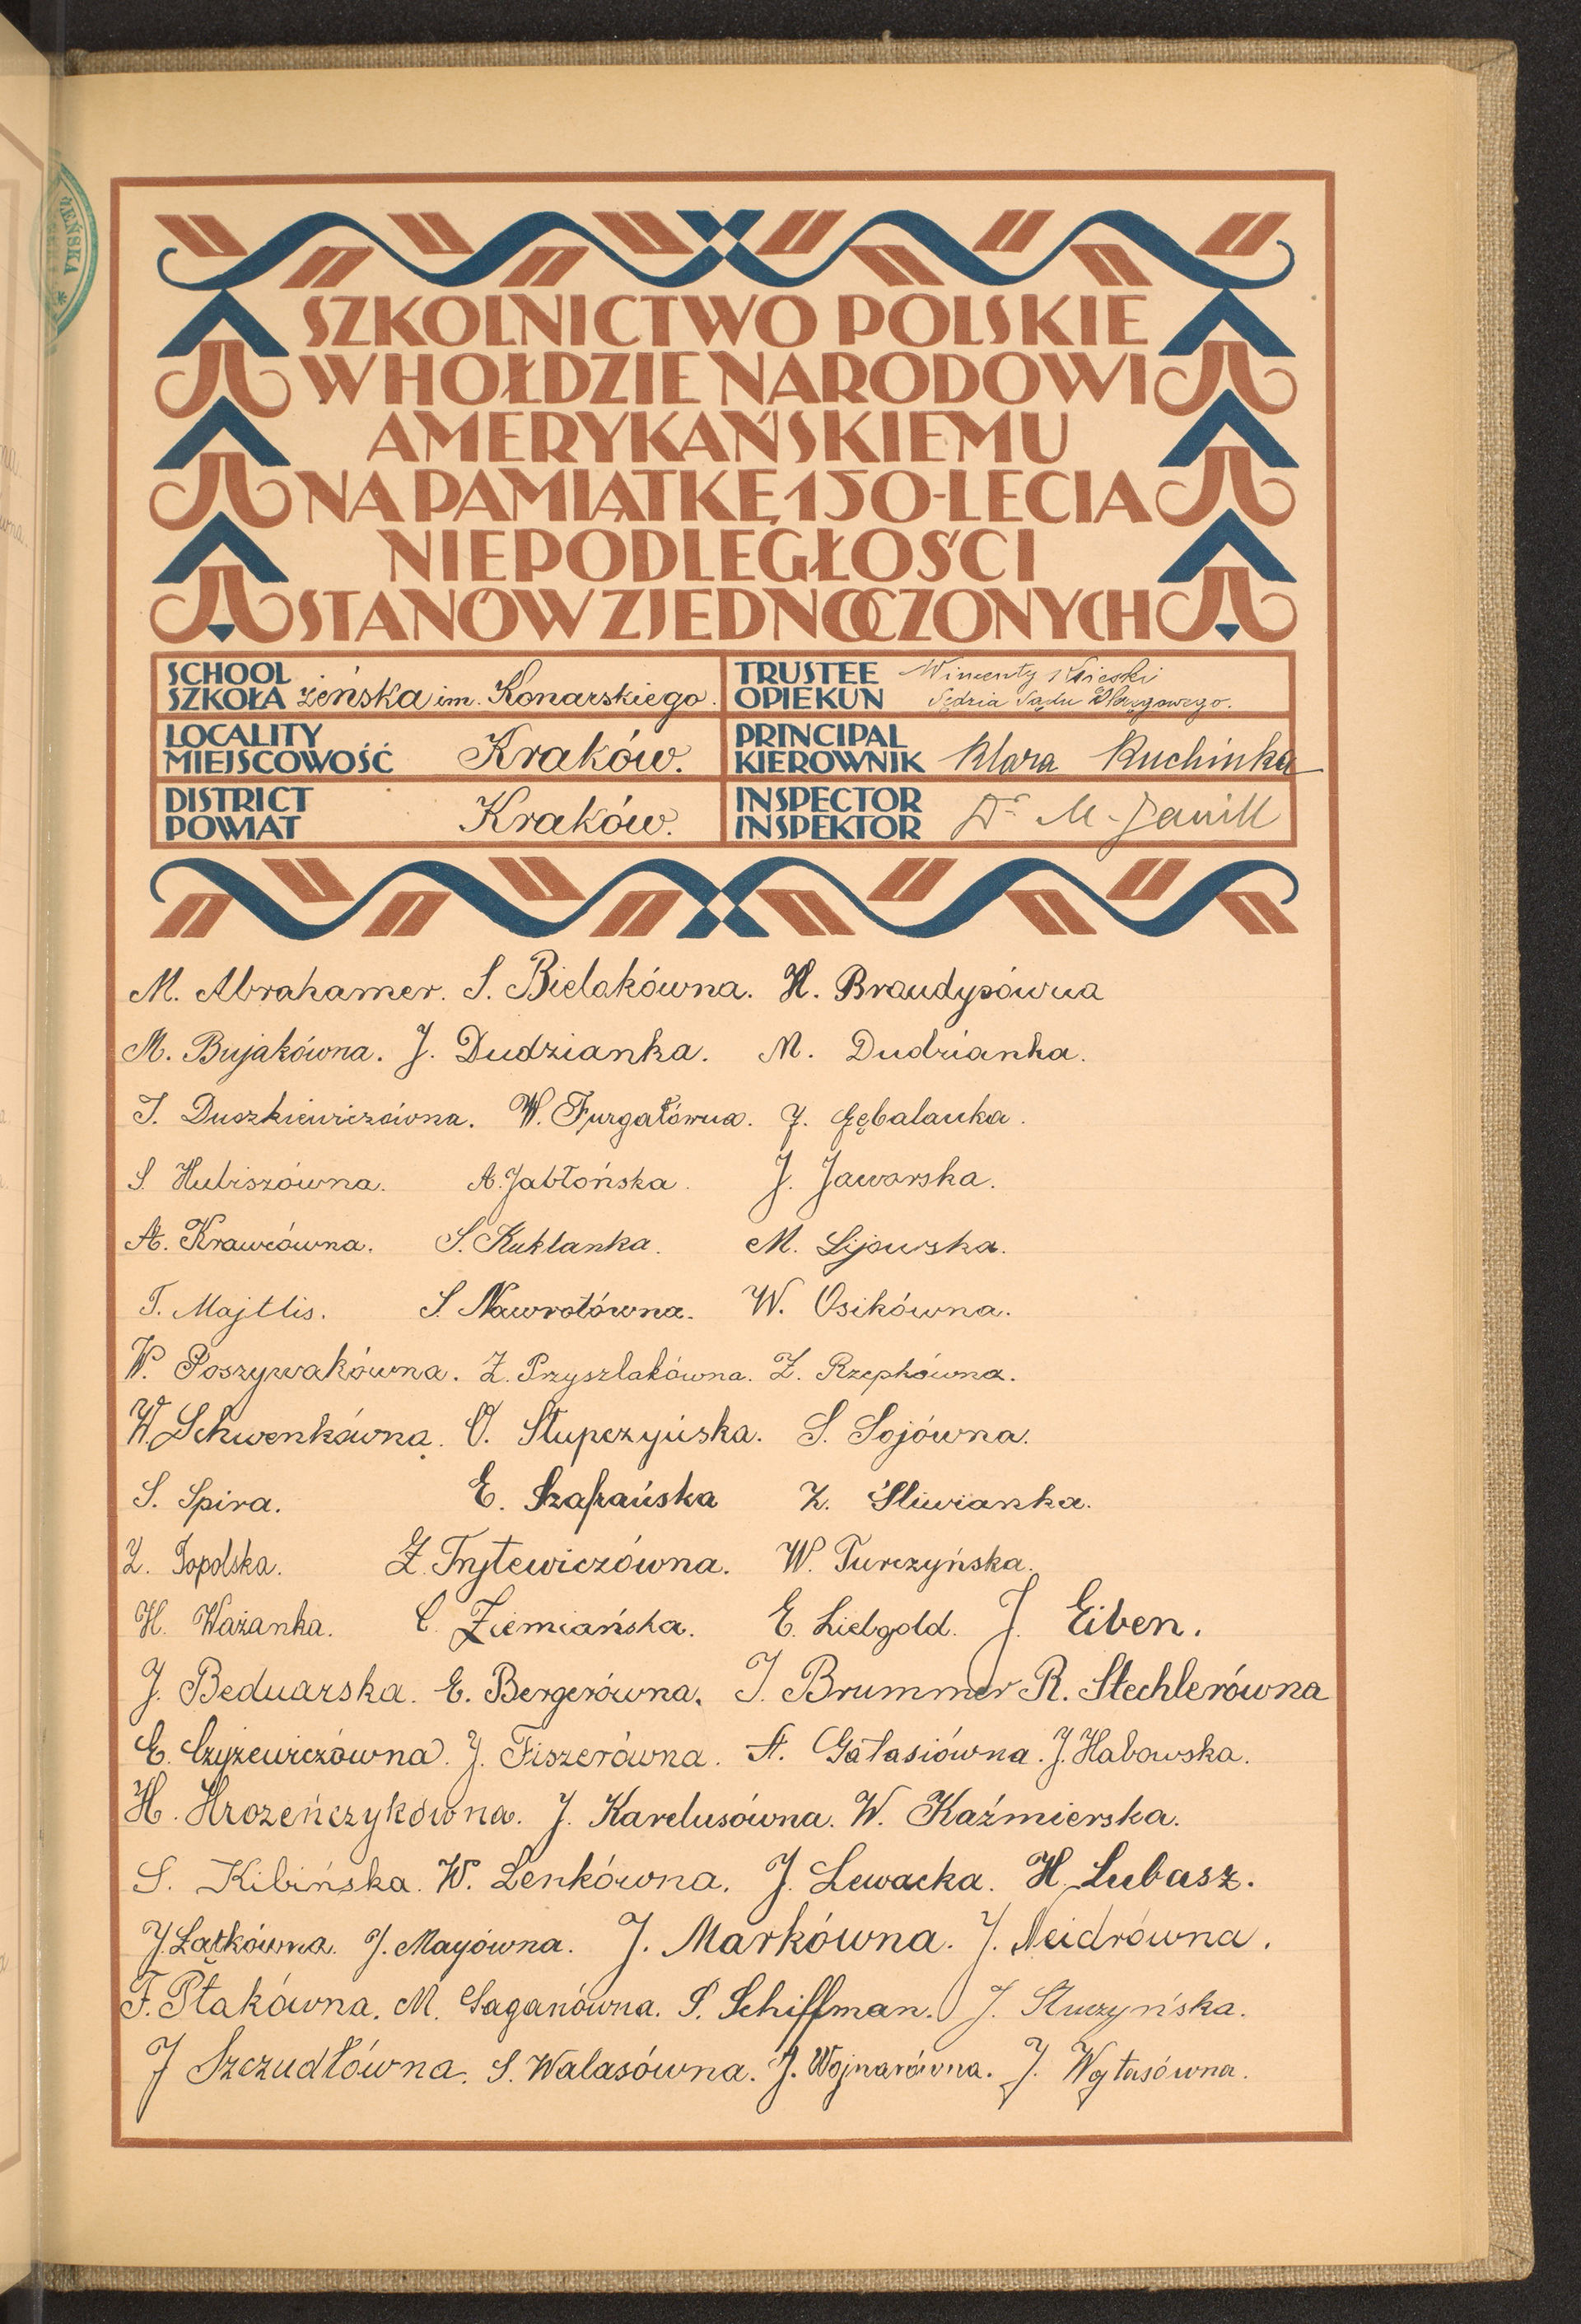 ŻEŃSKA
SZKOLNICTWO POLSKIE
W HOŁDZIE NARODOWI
AMERYKAŃSKIEMU
NA PAMIĄTKĘ 150-LECIA
NIEPODLEGŁOŚCI
STANÓW ZJEDNOCZONYCH
SCHOOL
SZKOŁA żeńska im. Konarskiego.
TRUSTEE Wincenty
OPIEKUN Sędzia Sądu Okręgowego.
LOCALITY
MIEJSCOWOŚĆ Kraków.
PRINCIPAL
KIEROWNIK Klara Ruchinka
DISTRICT
POWIAT Kraków.
INSPECTOR
INSPEKTOR Dr M.
M. Abrahamer. S. Bielakówna. H. Brandysówna
M. Bujakówna. J. Dudzianka. M. Dudzianka.
J. Duszkiewiczówna. W. Furgałówna. J. Gębalanka.
S. Hubiszówna. A. Jabłońska. J. Jaworska.
A. Krawcówna. S. Kuklanka. M. Lijowska.
T. Majtlis. S. Nawrotówna. W. Osikówna.
W. Poszywakówna. Z. Przyszlakówna. Z. Rzepkówna.
W. Schwenkówna. O. Słupczyńska. S. Sojówna.
S. Spira. E. Szafrańska Z. Śliwianka.
Z. Topolska. Z. Trytewiczówna. W. Turczyńska.
H. Ważanka. C. Ziemiańska. E. Lielgold. J. Eiben.
J. Bednarska. E. Bergerówna. J. Brummer R. Stechlerówna
E. Czyżewiczówna. J. Fiszerówna. A. Gałasiówna. J. Habowska.
H. Hrozeńczykówna. J. Karelusówna. W. Kaźmierska.
S. Kibińska. W. Lenkówna. J. Lewacka. H. Lubasz.
J. Łatkówna. J. Mayówna. J. Markówna. J. Neidrówna.
F. Ptakówna. M. Saganówna. S. Schiffman. J. Stuczyńska.
J Szczudłówna. S. Walasówna. J. Wojnarówna. J. Wojtasówna.